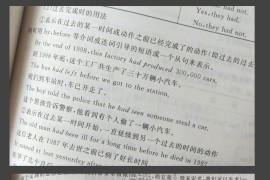 Yes, they had.
No, they had not.
②过去完成时的用法
①表示在过去的某一时间或动作之前已经完成了的动作(即过去的过去
before等介词或连词引导的短语或一个从句来表示。
By the end of 1988, this factory had produced 300,000 cars.
到1988年底,这个工厂共生产了三十万辆小汽车。
The bus had left before we got to the station.
我们到车站时,车已开走了。
The boy told the police that he had seen someone steal a car.
这个男孩告诉警察,他看到有个人偷了一辆小汽车。
②表示在过去某一时间开始,一直延续到另一个过去的时间的动作
The old man had been ill for a long time before he died in 1987.
这位老人在1987年去世之前已病了好长时间。
at last yesterday after